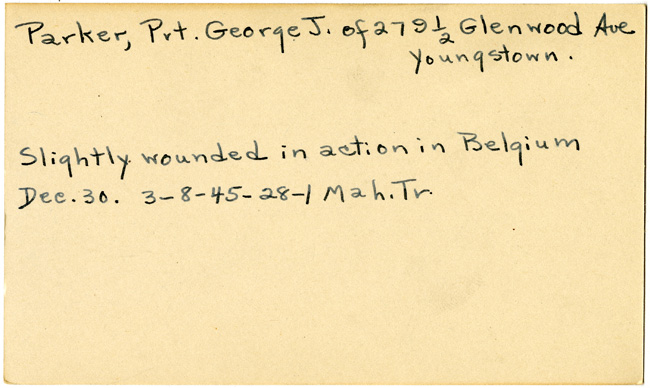 Parker, Pvt. George J. of 279 1/2 Glenwood Ave
Youngstown.
Slightly wounded in action in Belgium
Dec. 30. 3-8-45-28-1 Mah. Tr.